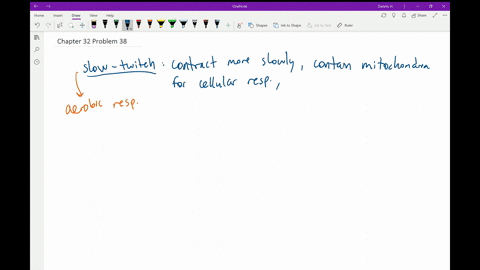 OneNote
Home Insert Draw View Help
Shapes Ink to Shape Ink to Math Replay
Chapter 32 Problem 38
slow-twitch : contract more slowly, contain mitochondria
for cellular resp.,
aerobic resp.